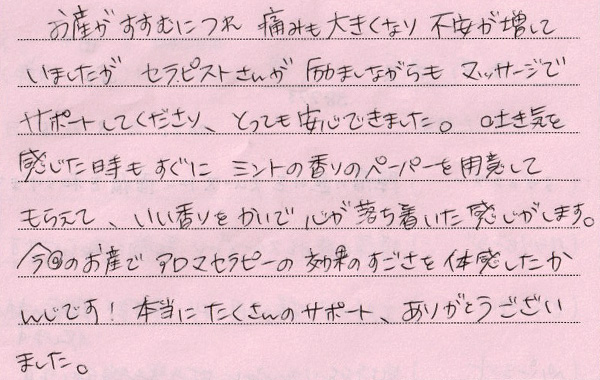 お産がすすむにつれ 痛みも大きくなり 不安が増して
いましたが セラピストさんが 励ましながらも マッサージで
サポートしてくださり、とっても安心できました。 吐き気を
感じた時も すぐに ミントの香りのペーパーを用意して
もらえて、いい香りをかいで 心が落ち着いた感じがします。
今回のお産で アロマセラピーの 効果のすごさを体感したか
んじです！ 本当にたくさんのサポート、ありがとうござい
ました。